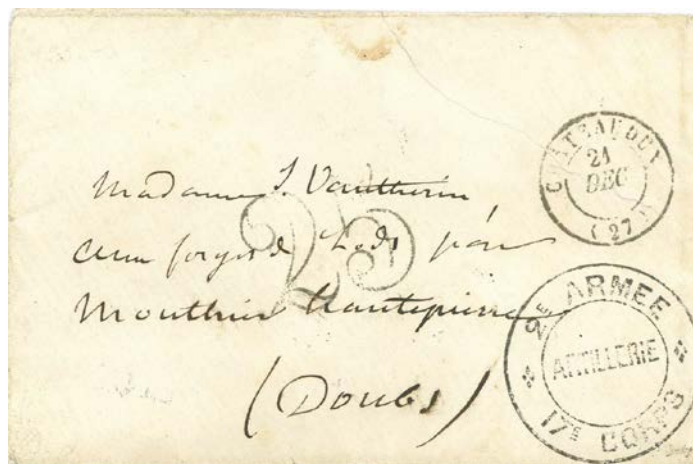 CHATEAUDUN
21
DEC
(27)
Madame J. Vautherin
aux forges de Lods par
Mouthier Hautepierre
(Doubs)
25
2E ARMEE
ARTILLERIE
17E CORPS